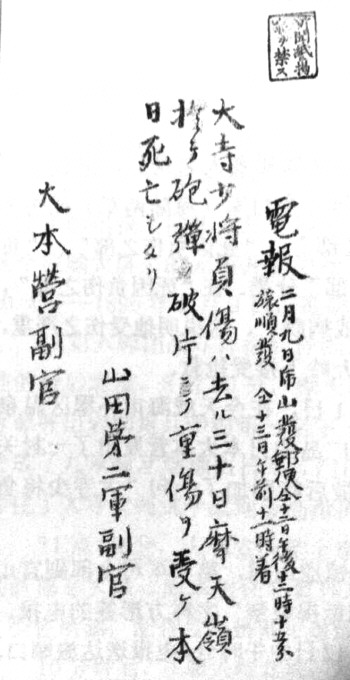 新聞紙掲
電報 二月九日帰山發郵便仝十二日午後十二時十五分
旅順發 仝十三日午前十一時着
大寺少将負傷ハ去ル三十日摩天嶺
於テ砲彈ノ破片ニテ重傷ヲ受ケ本
日死亡セリ
山田第二軍副官
大本營副官